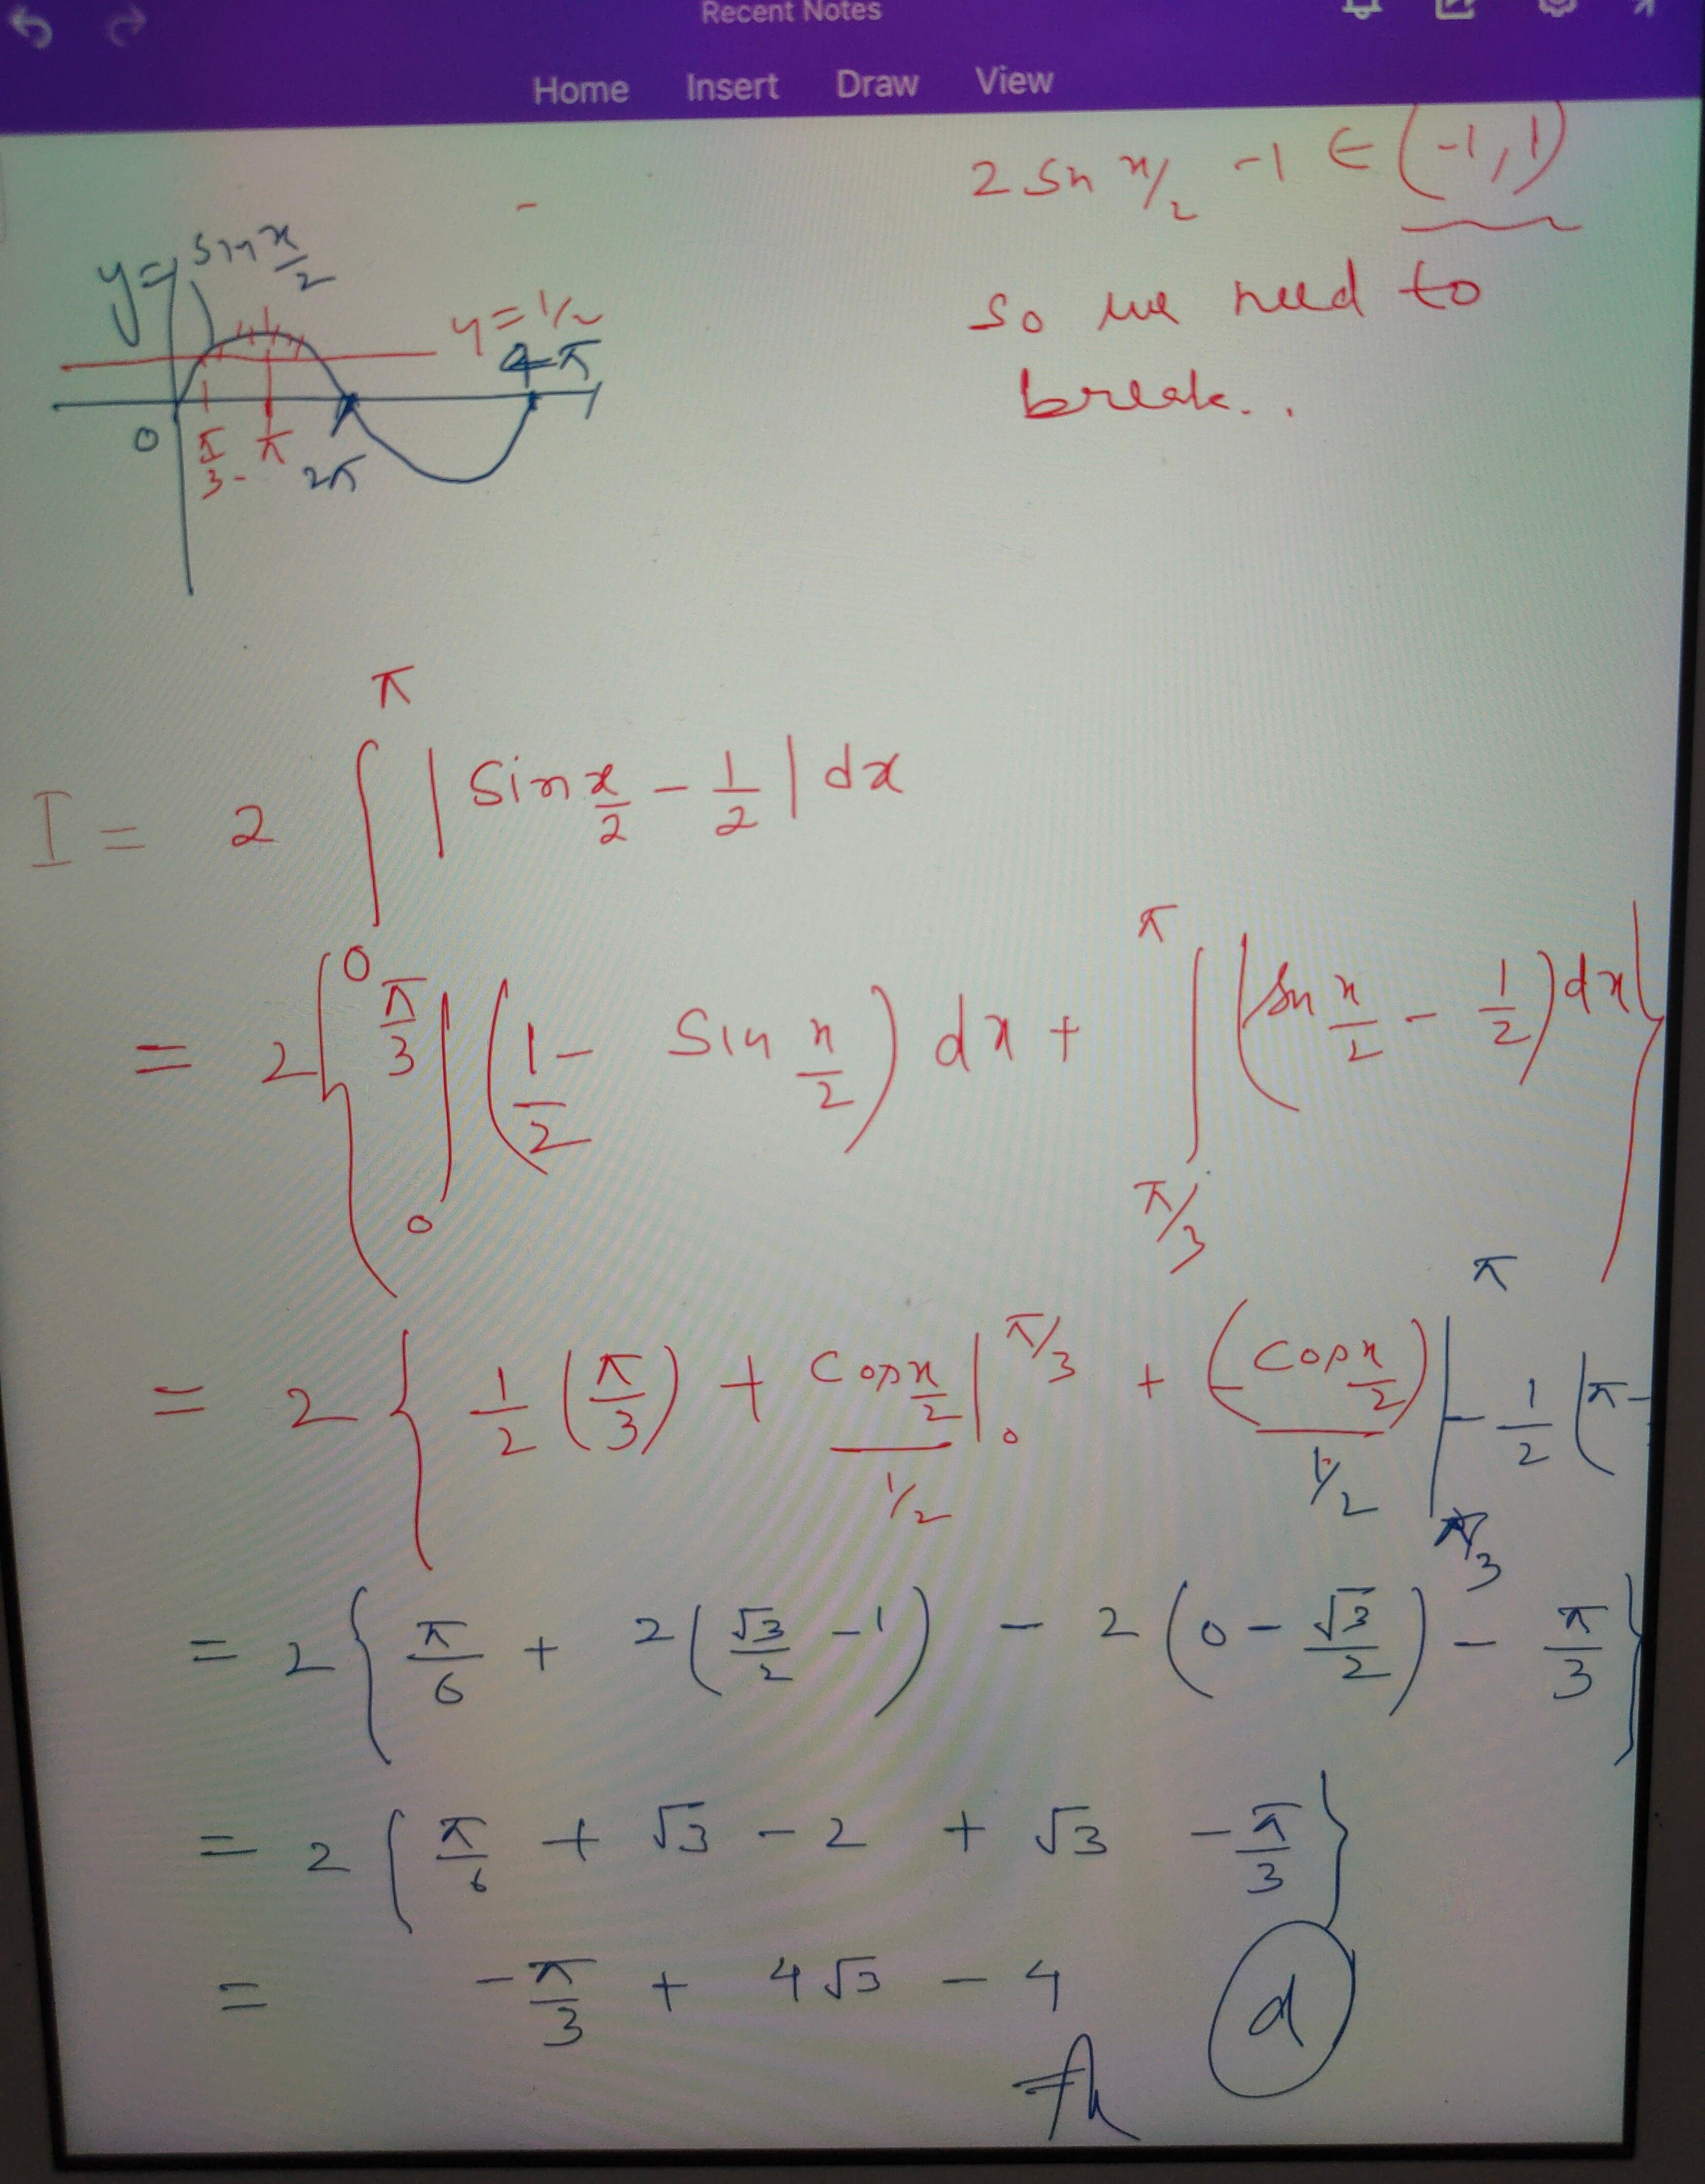 Recent Notes
Home Insert Draw View
2 sin x/2 - 1 ∈ (-1, 1)
so we need to
break..
y = sin x/2
y = 1/2
4π
0 π/3 π 2π
I = 2 ∫_0^π | sin x/2 - 1/2 | dx
= 2 { ∫_0^{π/3} (1/2 - sin x/2) dx + ∫_{π/3}^π (sin x/2 - 1/2) dx }
= 2 { 1/2 (π/3) + cos x/2 / 1/2 |_0^{π/3} + (- cos x/2) / 1/2 |_{π/3}^π - 1/2 (π -
= 2 { π/6 + 2 (√3/2 - 1) - 2 (0 - √3/2) - π/3 }
= 2 { π/6 + √3 - 2 + √3 - π/3 }
= - π/3 + 4√3 - 4
d